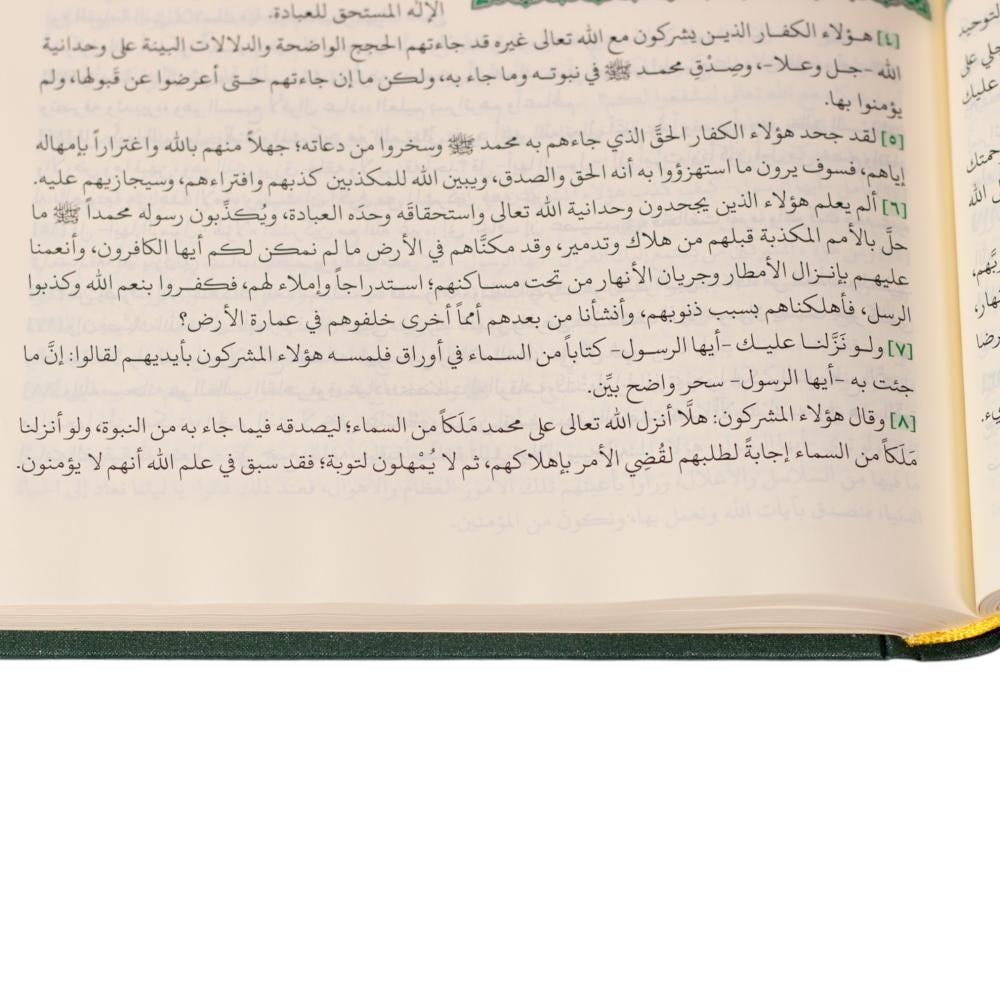 الإله المستحق للعبادة.
[٤] هـؤلاء الكفـار الذيـن يشركون مع الله تعالى غيره قد جاءتهم الحجج الواضحة والدلالات البينة على وحدانية
الله -جـل وعـلا-، وصِـدْقِ محمـد ﷺ في نبوتـه وما جاء به، ولكن ما إن جاءتهم حتى أعرضوا عن قَبولها، ولم
يؤمنوا بها.
[٥] لقد جحد هؤلاء الكفار الحقَّ الذي جاءهم به محمد ﷺ وسخروا من دعاته؛ جهلاً منهم بالله واغتراراً بإمهاله
إياهم، فسوف يرون ما استهزؤوا به أنه الحق والصدق، ويبين الله للمكذبين كذبهم وافتراءهم، وسيجازيهم عليه.
[٦] ألم يعلم هؤلاء الذين يجحدون وحدانية الله تعالى واستحقاقَه وحدَه العبادة، ويُكذِّبون رسوله محمداً ﷺ ما
حلَّ بالأمم المكذبة قبلهم من هلاك وتدمير، وقد مكنَّاهم في الأرض ما لم نمكن لكم أيها الكافرون، وأنعمنا
عليهـم بإنـزال الأمطار وجريان الأنهار من تحت مسـاكنهم؛ اسـتدراجاً وإملاء لهم، فكفـروا بنعم الله وكذبوا
الرسل، فأهلكناهم بسبب ذنوبهم، وأنشأنا من بعدهم أمماً أخرى خلفوهم في عمارة الأرض؟
[٧] ولـو نَزَّلنـا عليـك -أيها الرسـول- كتاباً من السماء في أوراق فلمسـه هؤلاء المشركون بأيديهـم لقالوا: إنَّ ما
جئت به -أيها الرسول- سحر واضح بيِّن.
[٨] وقال هؤلاء المشركون: هلَّا أنزل الله تعالى على محمد مَلَكاً من السماء؛ ليصدقه فيما جاء به من النبوة، ولو أنزلنا
مَلَكاً من السماء إجابةً لطلبهم لقُضِي الأمر بإهلاكهم، ثم لا يُمْهلون لتوبة؛ فقد سبق في علم الله أنهم لا يؤمنون.